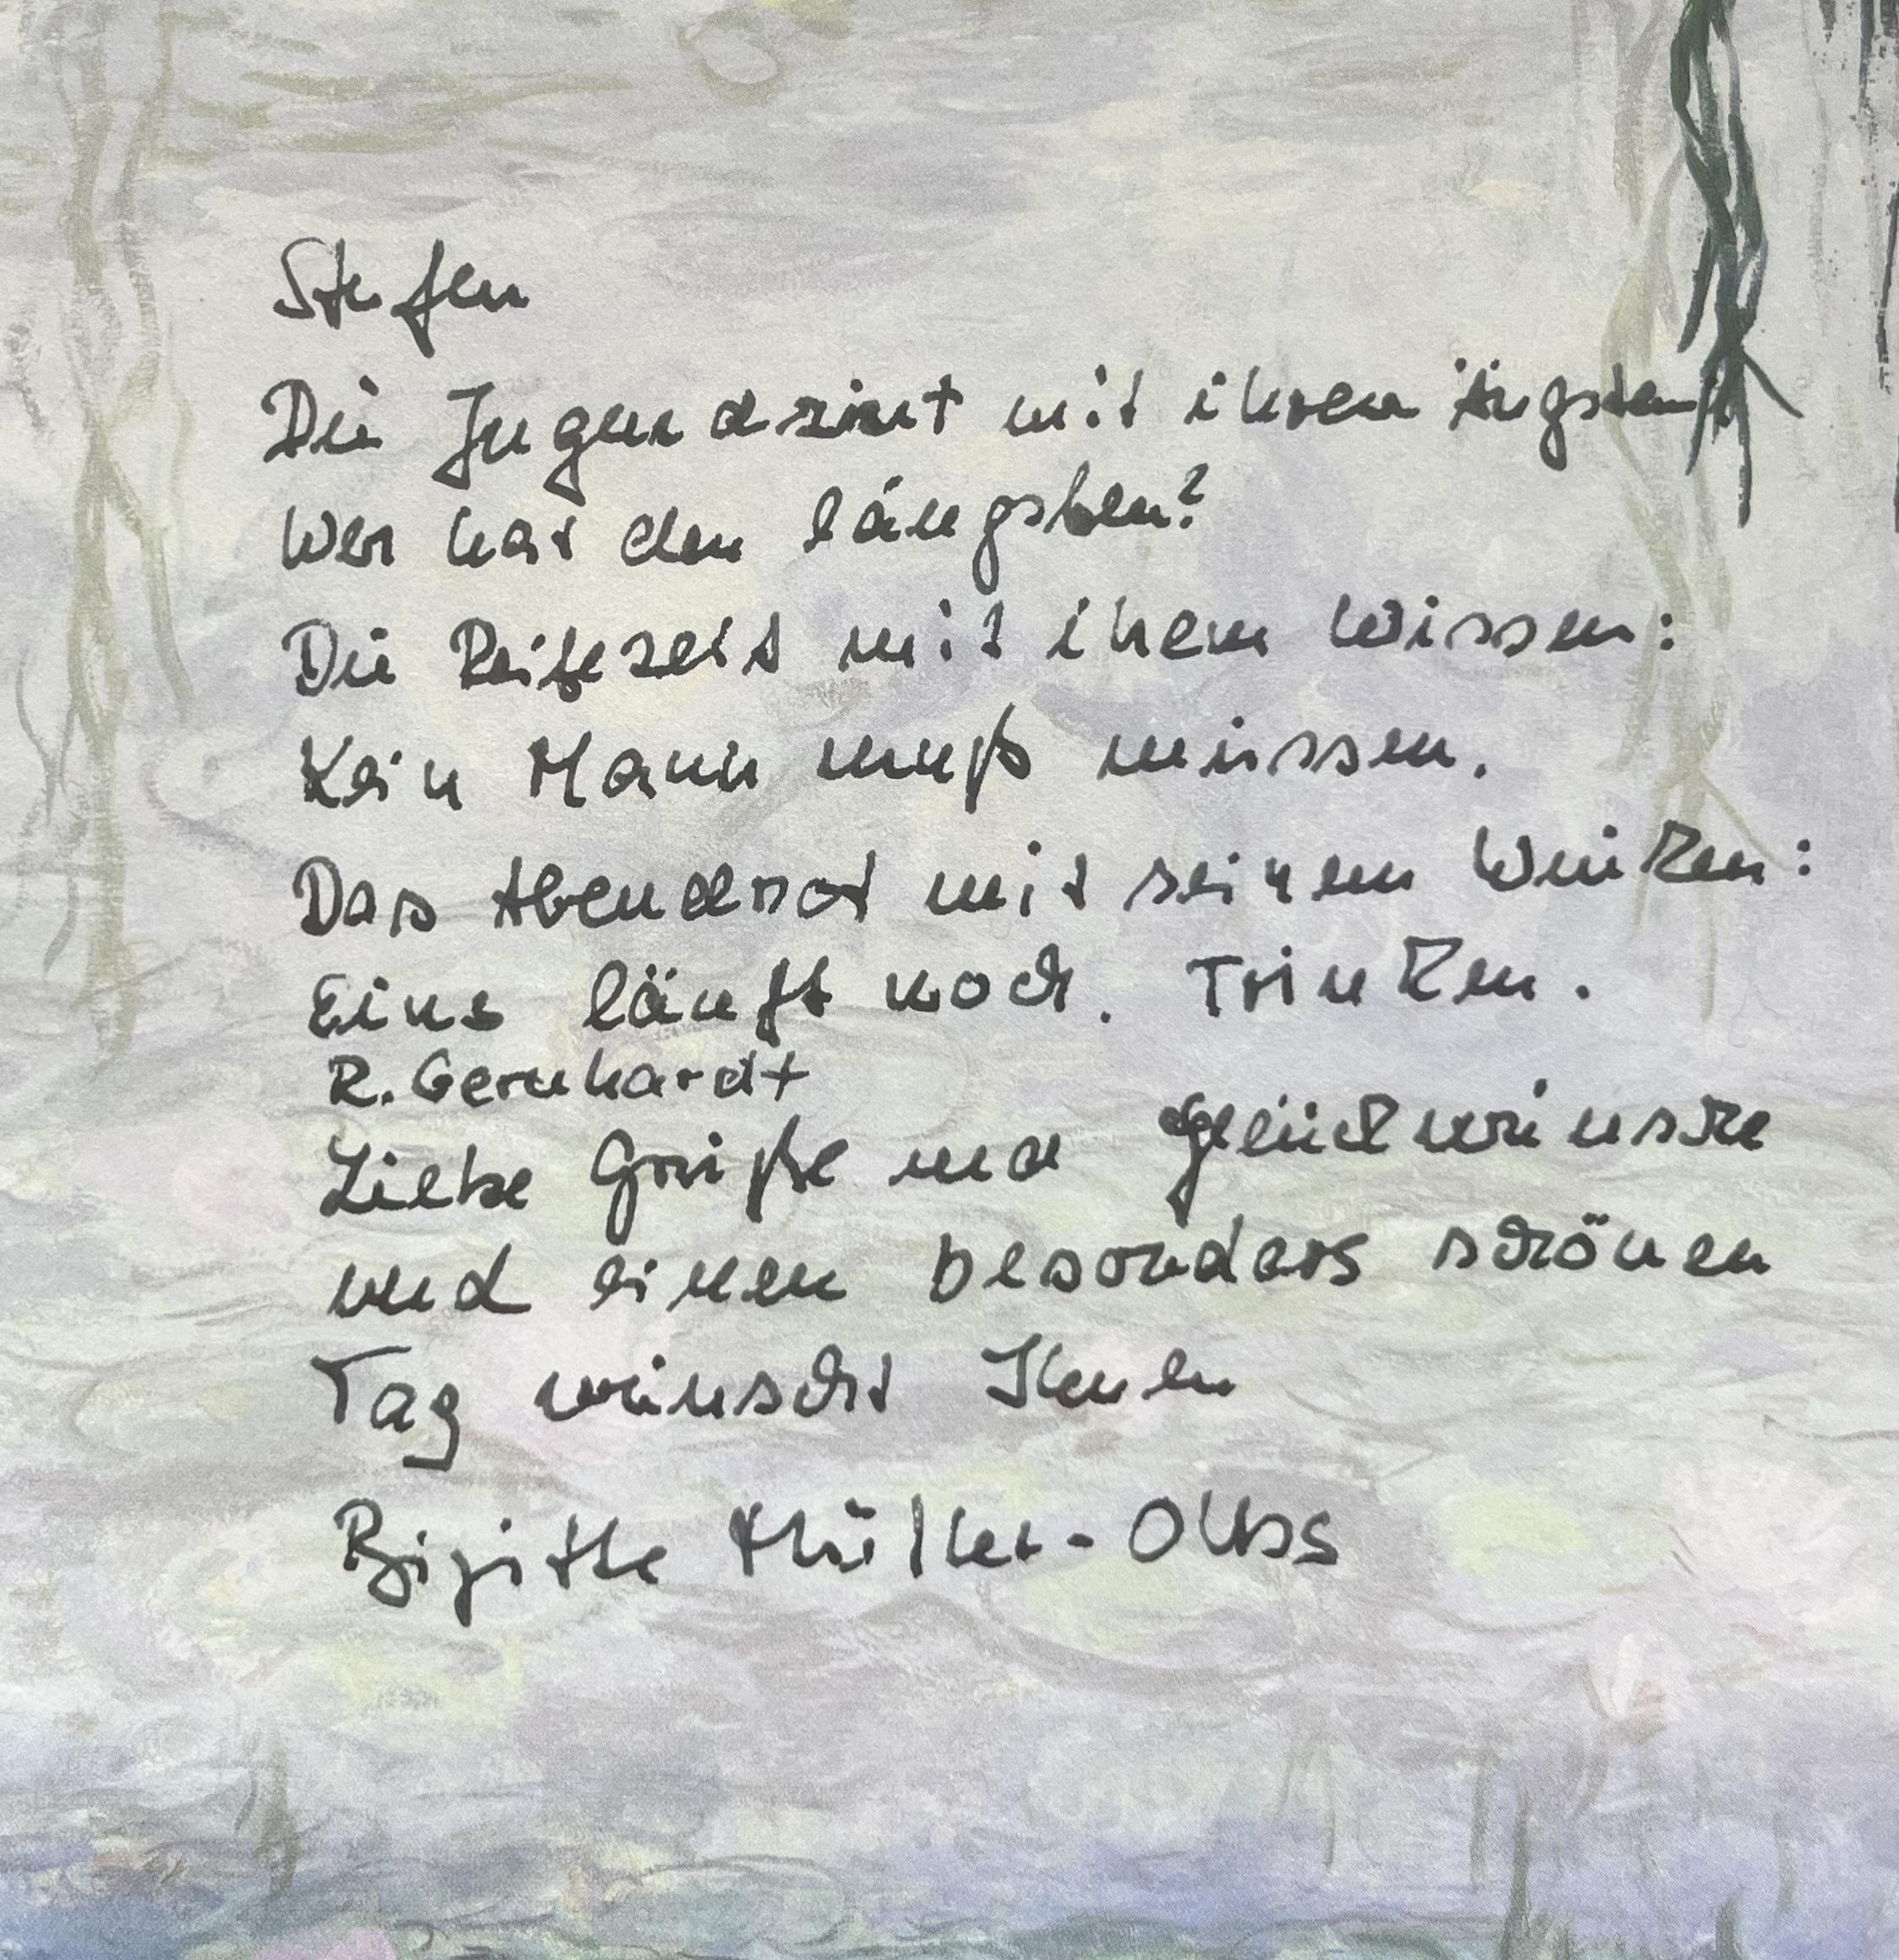 Stufen
Die Jugendzeit mit ihren Ängsten
Wer hat den längsten?
Die Reifezeit mit ihrem Wissen:
Kein Mann muß müssen.
Das Abendrot mit seinem Winken:
Eins läuft noch. Trinken.
R. Gernhardt
Liebe Grüße und Glückwünsche
und einen besonders schönen
Tag wünscht Ihnen
Brigitte Müller-